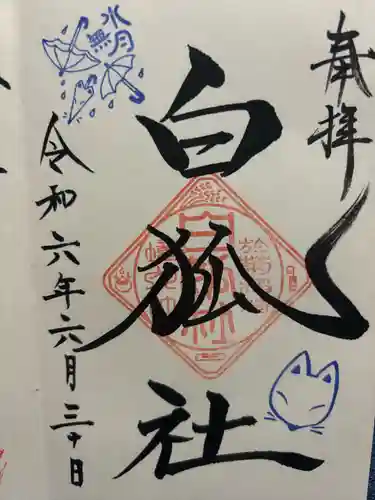 奉拝
白狐社
令和六年六月三十日
水無月